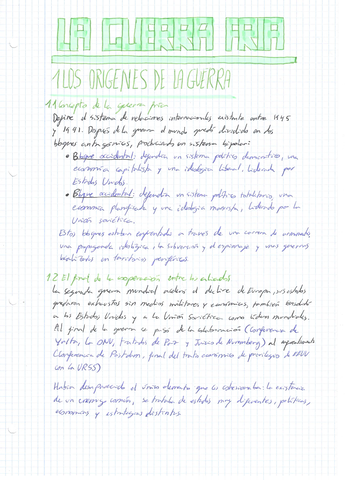 LA GUERRA FRIA
1 LOS ORIGENES DE LA GUERRA
1.1 Concepto de la guerra fria
Define el sistema de relaciones internacionales existente entre 1945
y 1991. Después de la guerra el mundo quedó dividido en dos
bloques antagónicos, produciendo un sistema bipolar:
• Bloque occidental: defendía un sistema político democrático, una
economía capitalista y una ideología liberal, liderada por
Estados Unidos.
• Bloque occidental: defendía un sistema político totalitario, una
economía planificada y una ideología marxista, liderado por la
Unión soviética.
Estos bloques estaban enfrentados a través de una carrera de armamento,
una propaganda ideológica, la subversión y el espionaje y unas guerras
localizadas en territorios periféricos.
1.2 El final de la cooperación entre los aliados
La segunda guerra mundial acelera el declive de Europa, sus estados
quedaron exhaustos sin medios militares y económicos, también
a los Estados Unidos y a la Unión Soviética como líderes mundiales.
Al final de la guerra se pasó de la colaboración (Conferencia de
Yalta, la ONU, tratados de Paz y Juicio de Nuremberg) al
(Conferencia de Postdam, final del trato económico de privilegio de EEUU
con la URSS)
Había desaparecido el único elemento que los cohesionaba: la existencia
de un enemigo común, se trataba de estados muy diferentes, políticas,
economías y estrategias distintas.